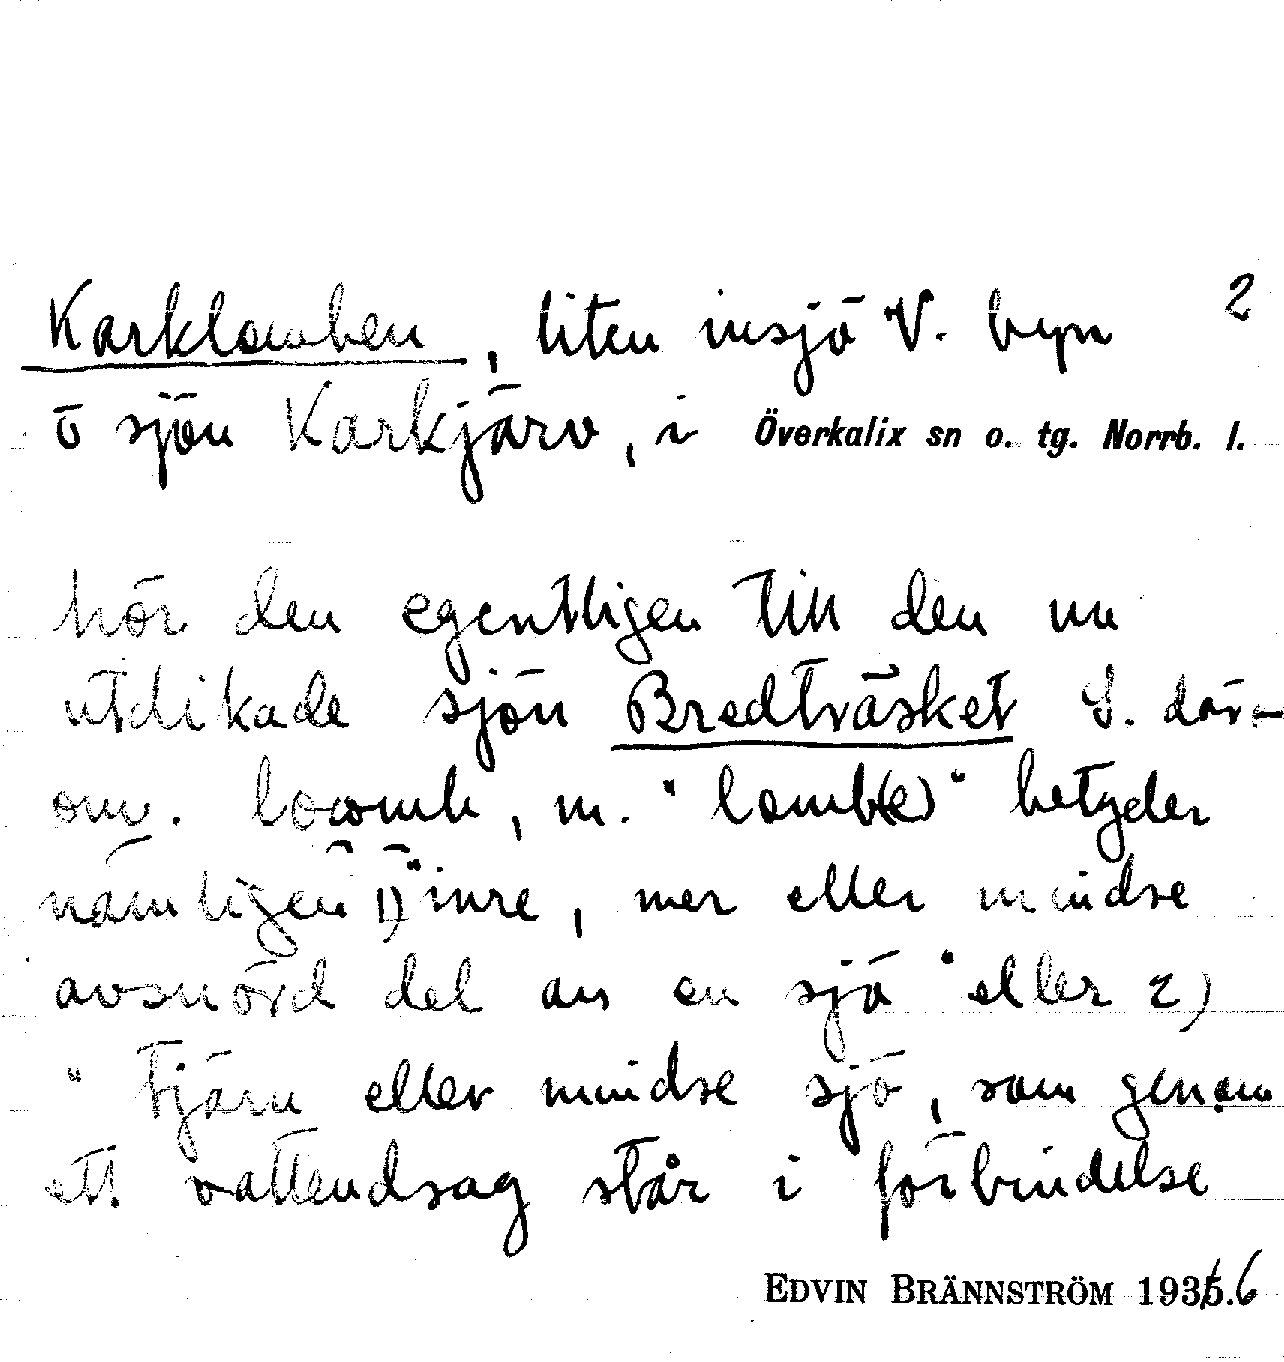 2
Karklomben, liten insjö V. byn
o sjön Karkjärv, i Överkalix sn o. tg. Norrb. l.
hör den egentligen till den nu
utdikade sjön Bredträsket S. där-
om. lowmb, m. "lomb(e)" betyder
nämligen 1) "inre, mer eller mindre
avsnörd del av en sjö" eller 2)
"tjärn eller mindre sjö, som genom
ett vattendrag står i förbindelse
EDVIN BRÄNNSTRÖM 1935.6